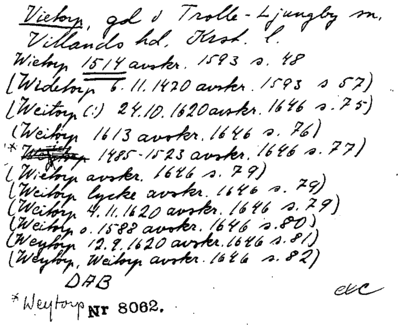 Vietorp, gd i Trolle-Ljungby sn,
Villands hd, Krst. l.
Wietorp 1514 avskr. 1593 s. 48
(Widetorp 6.11.1420 avskr. 1593 s 57)
(Weitorp (:) 24.10.1620 avskr. 1646 s. 75)
(Weitorp 1613 avskr. 1646 s. 76)
* 1485-1523 avskr. 1646 s. 77)
(Wietorp avskr. 1646 s. 79)
(Weitorp lycke avskr. 1646 s. 79)
(Weitorp 4.11.1620 avskr. 1646 s. 79)
(Weitorp o. 1588 avskr. 1646 s. 80)
(Weytorp 12.9.1620 avskr. 1646 s. 81)
(Weytorp, Weitorp avskr. 1646 s. 82)
DAB
* Weytorp Nr 8062.